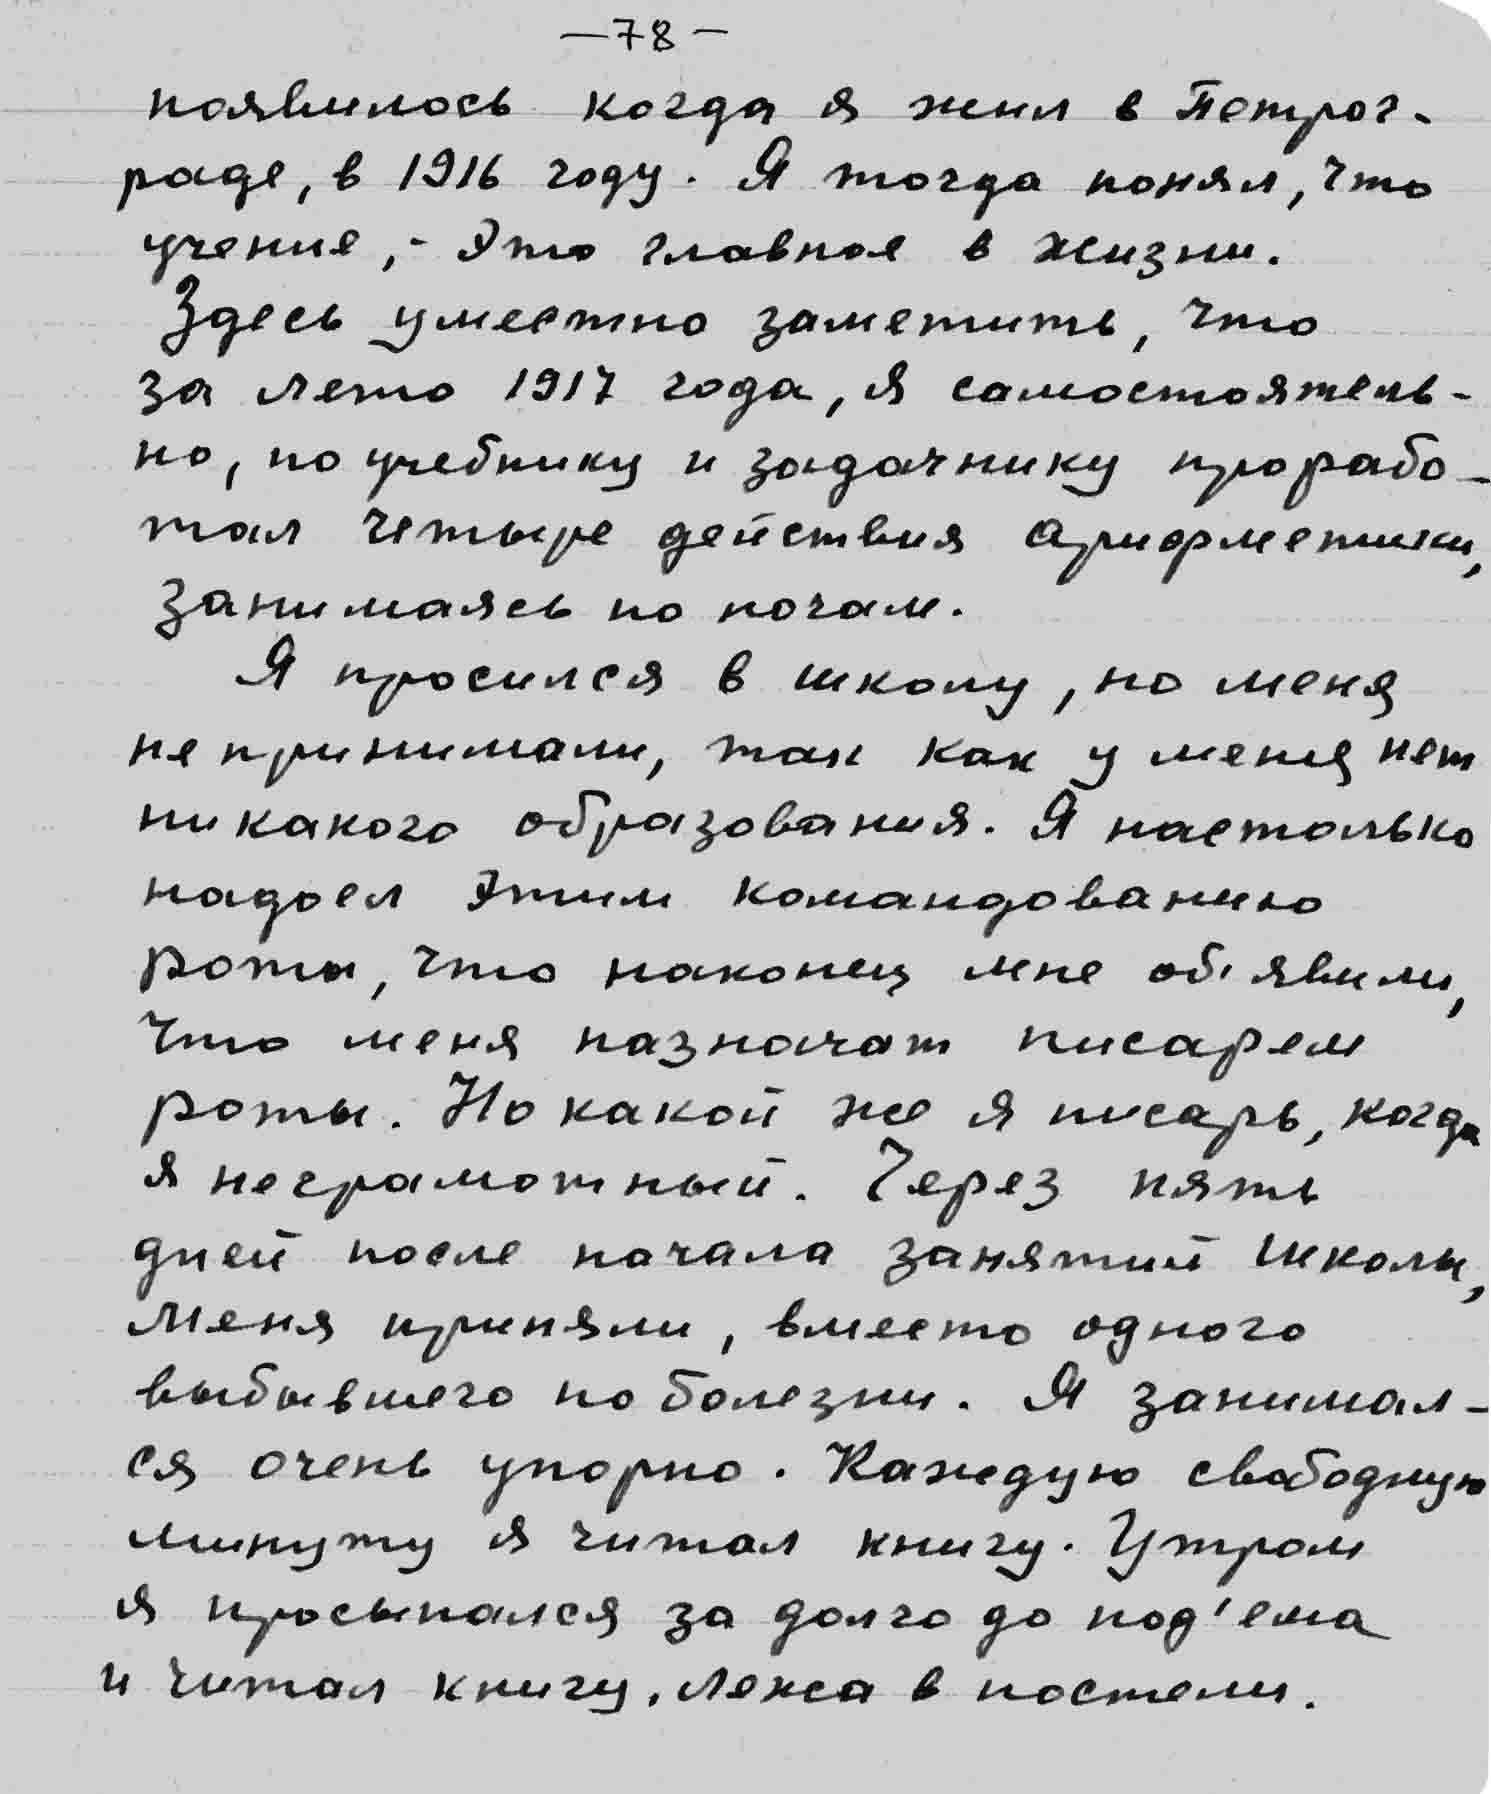 —78—
появилось когда я жил в Петрог-
раде, в 1916 году. Я тогда понял, что
учение, - это главное в жизни.
Здесь уместно заметить, что
за лето 1917 года, я самостоятель-
но, по учебнику и задачнику прорабо-
тал четыре действия арифметики,
занимаясь по ночам.
Я просился в школу, но меня
не принимали, так как у меня нет
никакого образования. Я настолько
надоел этим командованию
роты, что наконец мне об'явили,
что меня назначат писарем
роты. Но какой же я писарь, когда
я неграмотный. Через пять
дней после начала занятий школы,
меня приняли, вместо одного
выбывшего по болезни. Я занимал-
ся очень упорно. Каждую свободную
минуту я читал книгу. Утром
я просыпался за долго до под'ема
и читал книгу, лежа в постели.